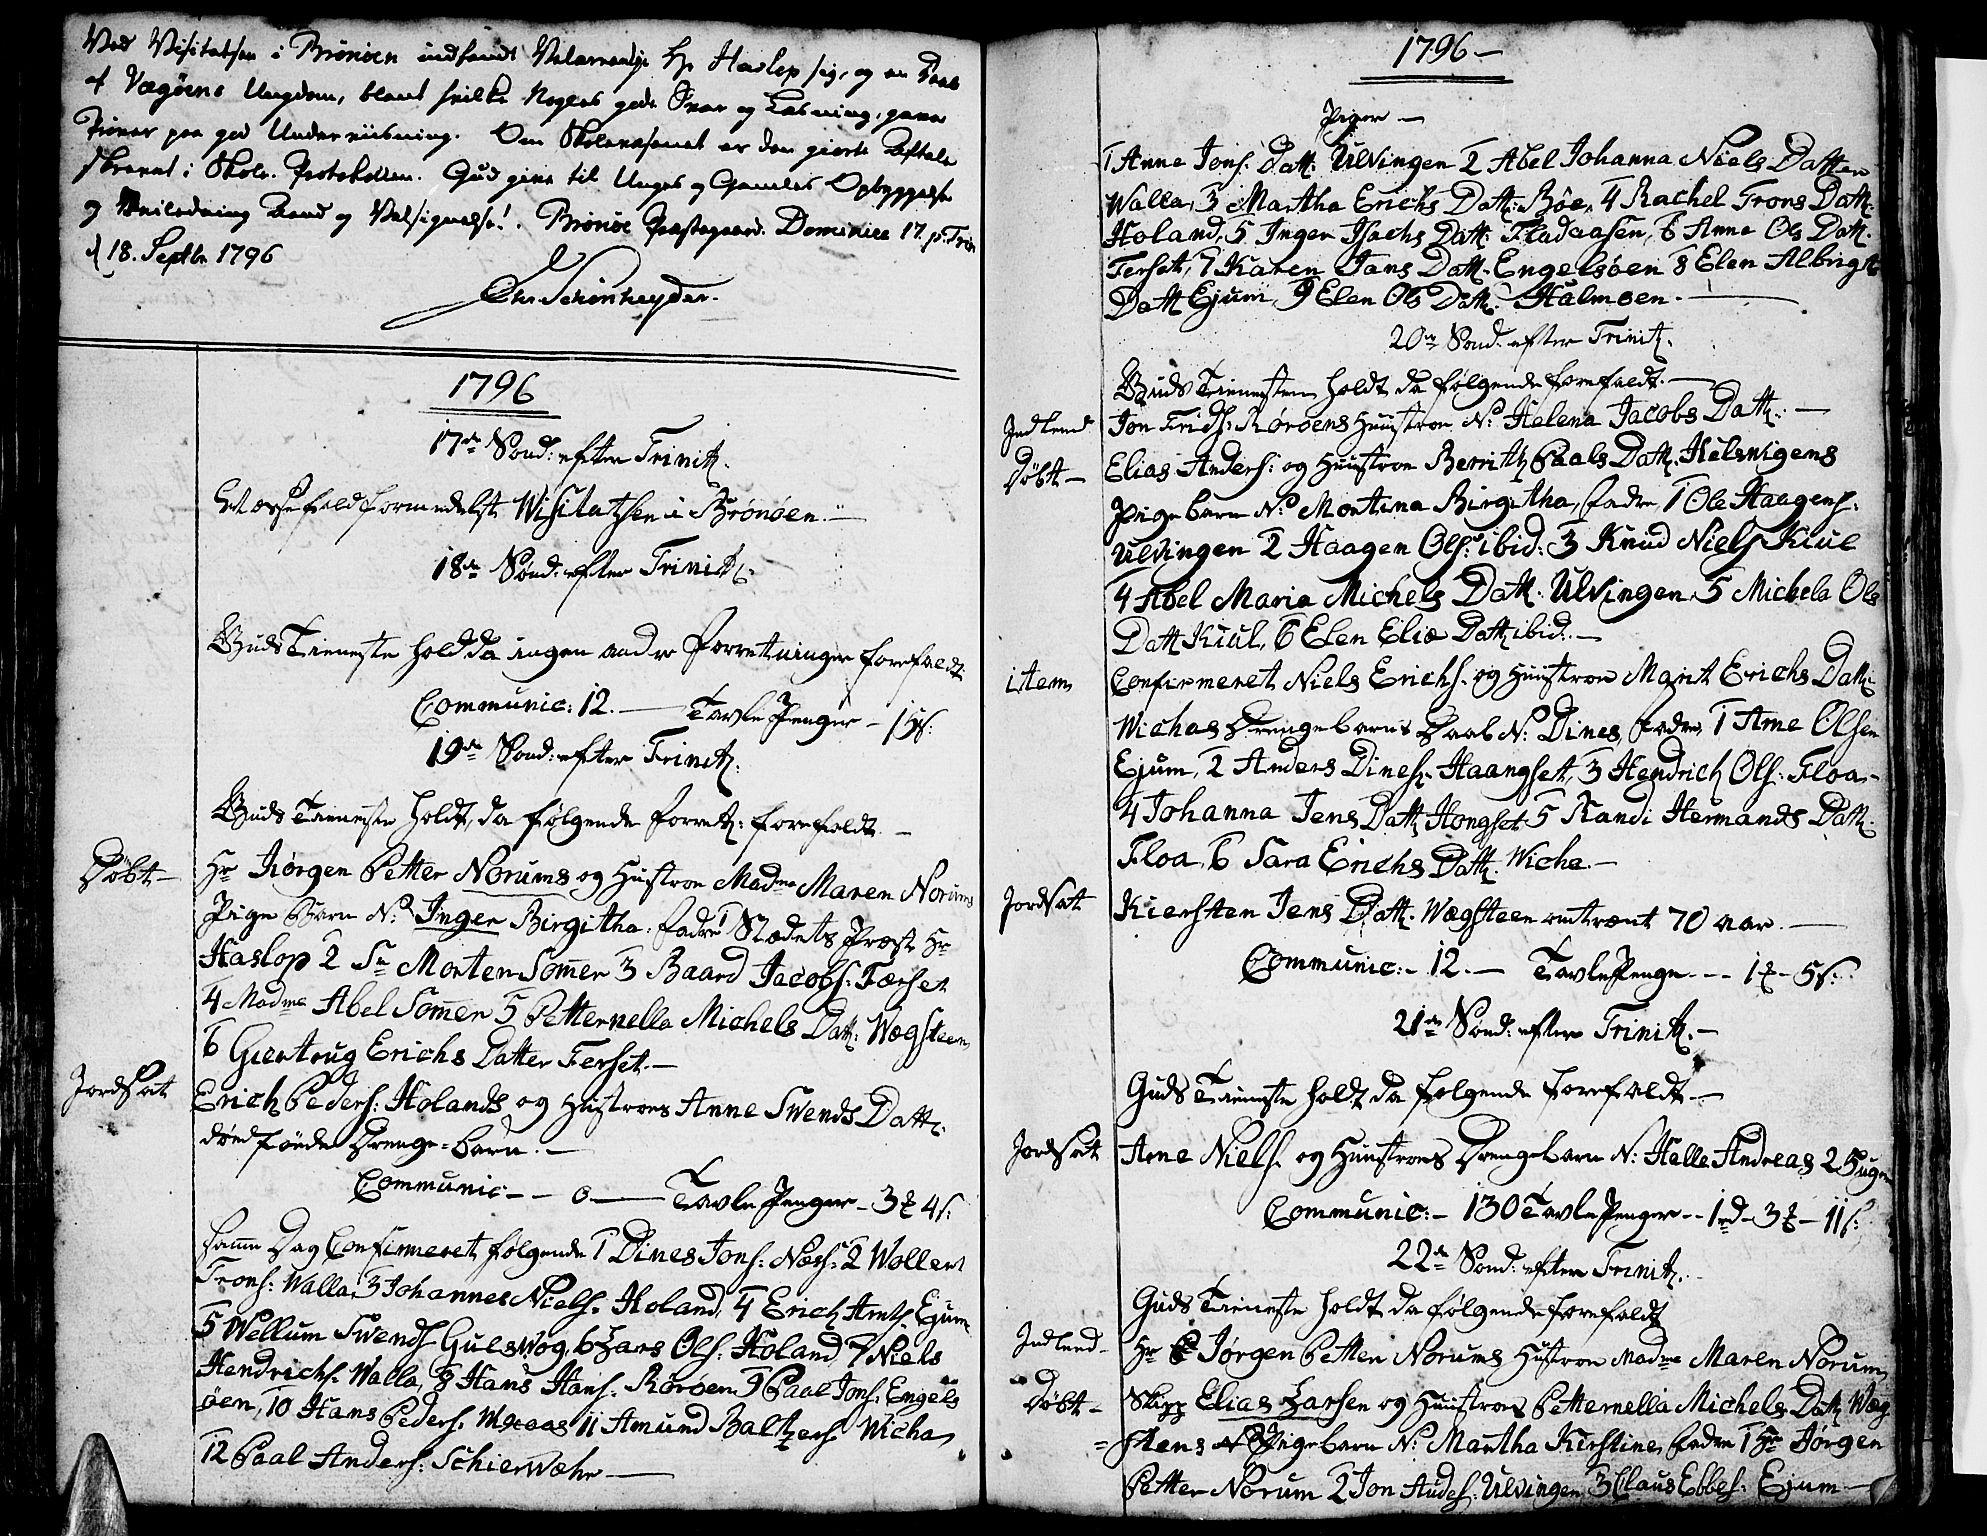 Ved Visitatsen i Brönöen indfandt Velærværdige Hr Haslop sig, og en Deel
af Vegöens Ungdom, blant hvilke Nogles gode Svar og Læsning, gave
Prøver paa god Underviisning. Om Skolevæsenet er den giorte Aftale
skrevet i Skole-Protokollen. Gud give til Unges og Gamles Opbyggelse
og Veiledning Naade og Velsignelse! Brönöe Præstegaard. Dominica 17. p. Trin
d 18. Septbr 1796
Chr. Schönheyder.
1796
17de Sond: efter Trinit.
Messefald formedelst Wisitatsen i Brönöen.
18de Sönd: efter Trinit.
Guds Tieneste hold da ingen andre Forretninger forefaldt
Communic: 12. — Tavle Penger – 15 s.
19de Sond: efter Trinit.
Guds Tieneste holdt, da følgende forret: forefaldt. –
Döbt – Hr Jörgen Petter Norums og Hustroe Madme Maren Norums
Pige Barn N. Inger Birgitha. fadre 1 Stædets Præst Hr
Haslop 2 Sr Morten Somer 3 Baard Jacobs: Færset
4 Madme Abel Somer 5 Petternella Michels Datt: Wægsteen
6 Giertrug Erichs Datter Ferset. –
Jordsat Erich Peders: Holands og Hustroes Anne Swends Datt.
dödfödde Drenge-barn. –
Communic – – 0 — Tavle Penger – 3 4 s:
samme Dag Confirmeret følgende 1 Dines Jons: Næss: 2 Wollert
Trons: Walla, 3 Johannes Niels. Holand, 4 Erich Arnts. Ejum
5 Wellum Swends Gulswog, 6 Lars Ols: Holand, 7 Niels
Hendrichs. Walla, 8 Hans Hans. Röröen 9 Paal Jons: Engels
öen, 10 Hans Peders. 11 Amund Baltzers. Wicha
12 Paal Anders: Schierwær —
1796 –
Piger –
1 Anne Jons. Datt: Ulvingen 2 Abel Johanna Niels Datter
Walla, 3 Martha Erichs Datt: Böe, 4 Rachel Trons Datt.
Holand, 5 Inger Isachs Datt: Fladaasen, 6 Anne Ols Datt.
Ferset, 7 Karen Jans Datt. Engelsöen 8 Elen Albrigt
Datt Ejum, 9 Elen Ols Datt. Halmöen. —
20de Sond: efter Trinit.
Guds Tienesten holdt da følgende forefaldt. —
Indleed Jon Frids: Röröens Huustroe N: Helena Jacobs Datt. —
Döbt – Elias Anders: og Huustroe Berrith Paals Datt. Helwigens
Pigebarn N: Mortina Birgitha, fadre 1 Ole Haagens:
Ulvingen 2 Haagen Ols: ibid: 3 Knud Niels Kiul
4 Abel Maria Michels Datt. Ulvingen 5 Michela Ols
Datt Kiul, 6 Elen Eliæ Datt ibid: –
item Confirmeret Niels Erichs. og Huustroe Marit Erichs Datt.
Wichas Drengebarns Daab N: Dines, fadre, 1 Arne Olsen
Ejum, 2 Anders Dines. Haangset, 3 Hendrich Ols: Floa –
4 Johanna Jens Datt Hongset 5 Randi Hermands Datt.
Floa, 6 Sara Erichs Datt. Wicha. –
Jordsat Kiersten Jens Datt. Wægsteen omtrent 70 aar. —
Communic: – 12. — Tavle Penge – – 1 – 5 s.
21de Sönd: efter Trinit. –
Guds Tieneste holdt da følgende forefaldt –
Jordsat Arne Niels. og Huustroes Drengebarn N: Halle Andreas 2 Huger
Communic: – 130 Tavle Penger – – 1 rd – 3 – 11 s:
22de Sond: efter Trinit.
Guds Tieneste holdt da følgende forefaldt
Indleed – Hr Jörgen Petter Norums Hustroe Madme Maren Norum
Döbt – Skipp Elias Larsen og Huustroes Petternella Michels Datt Wæg
= stens Pigebarn N: Martha Kirstine, fadre 1 Hr Jörgen
Petter Norum 2 Jon Anders. Ulvingen 3 Claus Ebbes: Ejum —